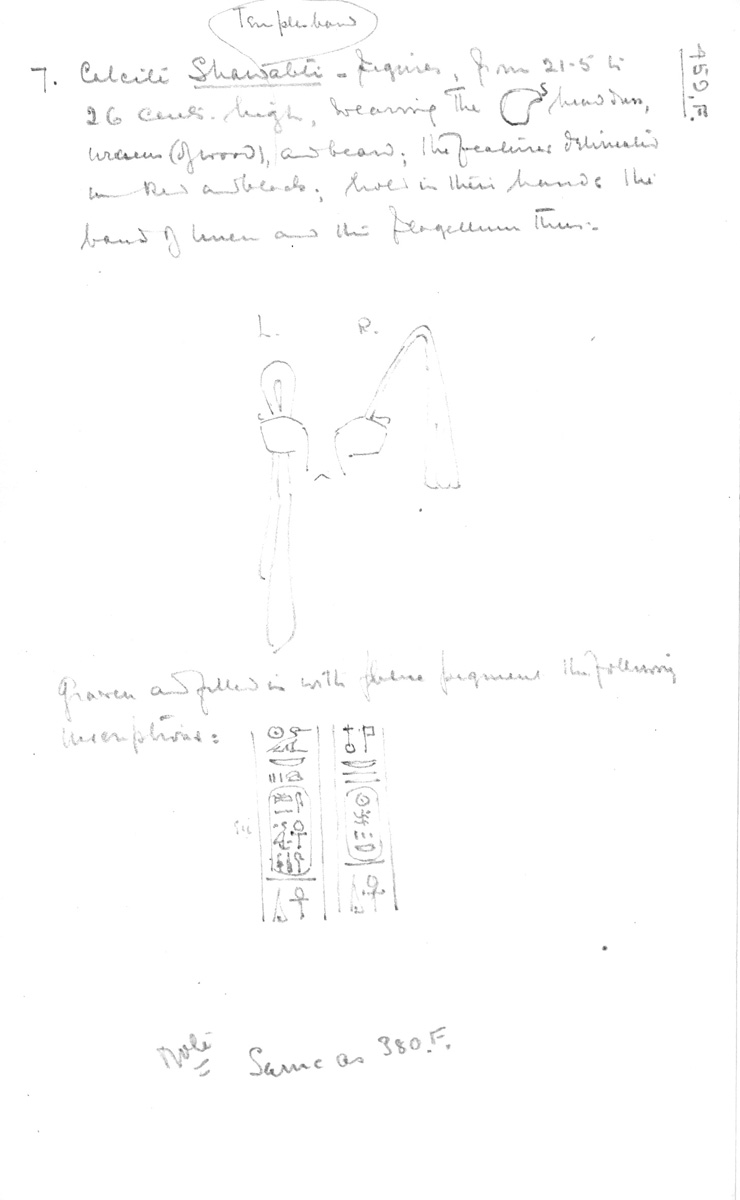 Temple-band
459.F.
7. Calcite Shawabti-figures, from 21-5 to
26 cents. high, wearing the headdress,
uraeus (of wood), and beard; the features delineated
in Red and black; hold in their hands the
band of linen and the flagellum thus:-
L. R.
Graven and filled in with blue pigment the following
inscriptions:
Note Same as 380.F.